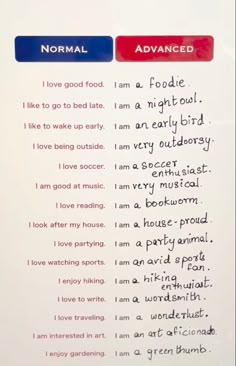 NORMAL ADVANCED
I love good food. I am a foodie.
I like to go to bed late. I am a night owl.
I like to wake up early. I am an early bird.
I love being outside. I am very outdoorsy.
I love soccer. I am a soccer
enthusiast.
I am good at music. I am very musical.
I love reading. I am a bookworm.
I look after my house. I am a house-proud.
I love partying. I am a party animal.
I love watching sports. I am an avid sports
fan.
I enjoy hiking. I am a hiking
enthusiast.
I love to write. I am a wordsmith.
I love traveling. I am a wonderlust.
I am interested in art. I am an art aficionado.
I enjoy gardening. I am a green thumb.